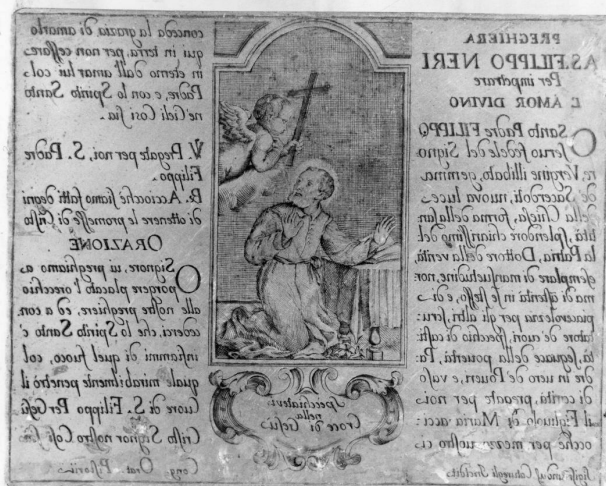 PREGHIERA
A S. FILIPPO NERI
Per impetrare
L'AMOR DIVINO
O Santo Padre FILIPPO
seruo fedele del Signo-
re, Vergine illibato, gemma
de' Sacerdoti, nuova luce
della Chiesa, forma della san-
tità, splendore chiarissimo del-
la Patria, Dottore della verità,
esemplare di mansuetudine, nor-
ma di in se stesso, e di
piacevolezza per gli altri, scru-
tatore de' cuori, specchio di casti-
tà, seguace della povertà, Pa-
dre in vero de' Poveri, e vaso
di carità, pregate per noi
il Figliuolo di Maria acci-
occhè per mezzo vostro ci
conceda la grazia di amarlo
qui in terra, per non cessare
in eterno dall'amar lui col
Padre, e con lo Spirito Santo
ne' Cieli Così sia
V. Pregate per noi, S. Padre
Filippo.
R. Acciocchè siamo fatti degni
di ottenere le promesse di Cristo
ORAZIONE
O Signore, vi preghiamo a
porgere placato l'orecchio
alle nostre preghiere, ed a con-
cederci che lo Spirito Santo c'
infiammi di quel fuoco, col
quale mirabilmente penetrò il
Cuore di S. Filippo Per Gesù
Cristo Signor nostro Così sia
Cong. Orat. Pistorii
Specchiatevi
nella
Croce di Gesù